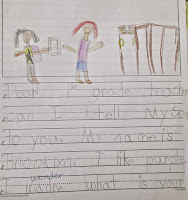 Dear 1st grade teach
Can I tell My
To you. My name is
Brooklyn. I like purple
wonder
I what is your